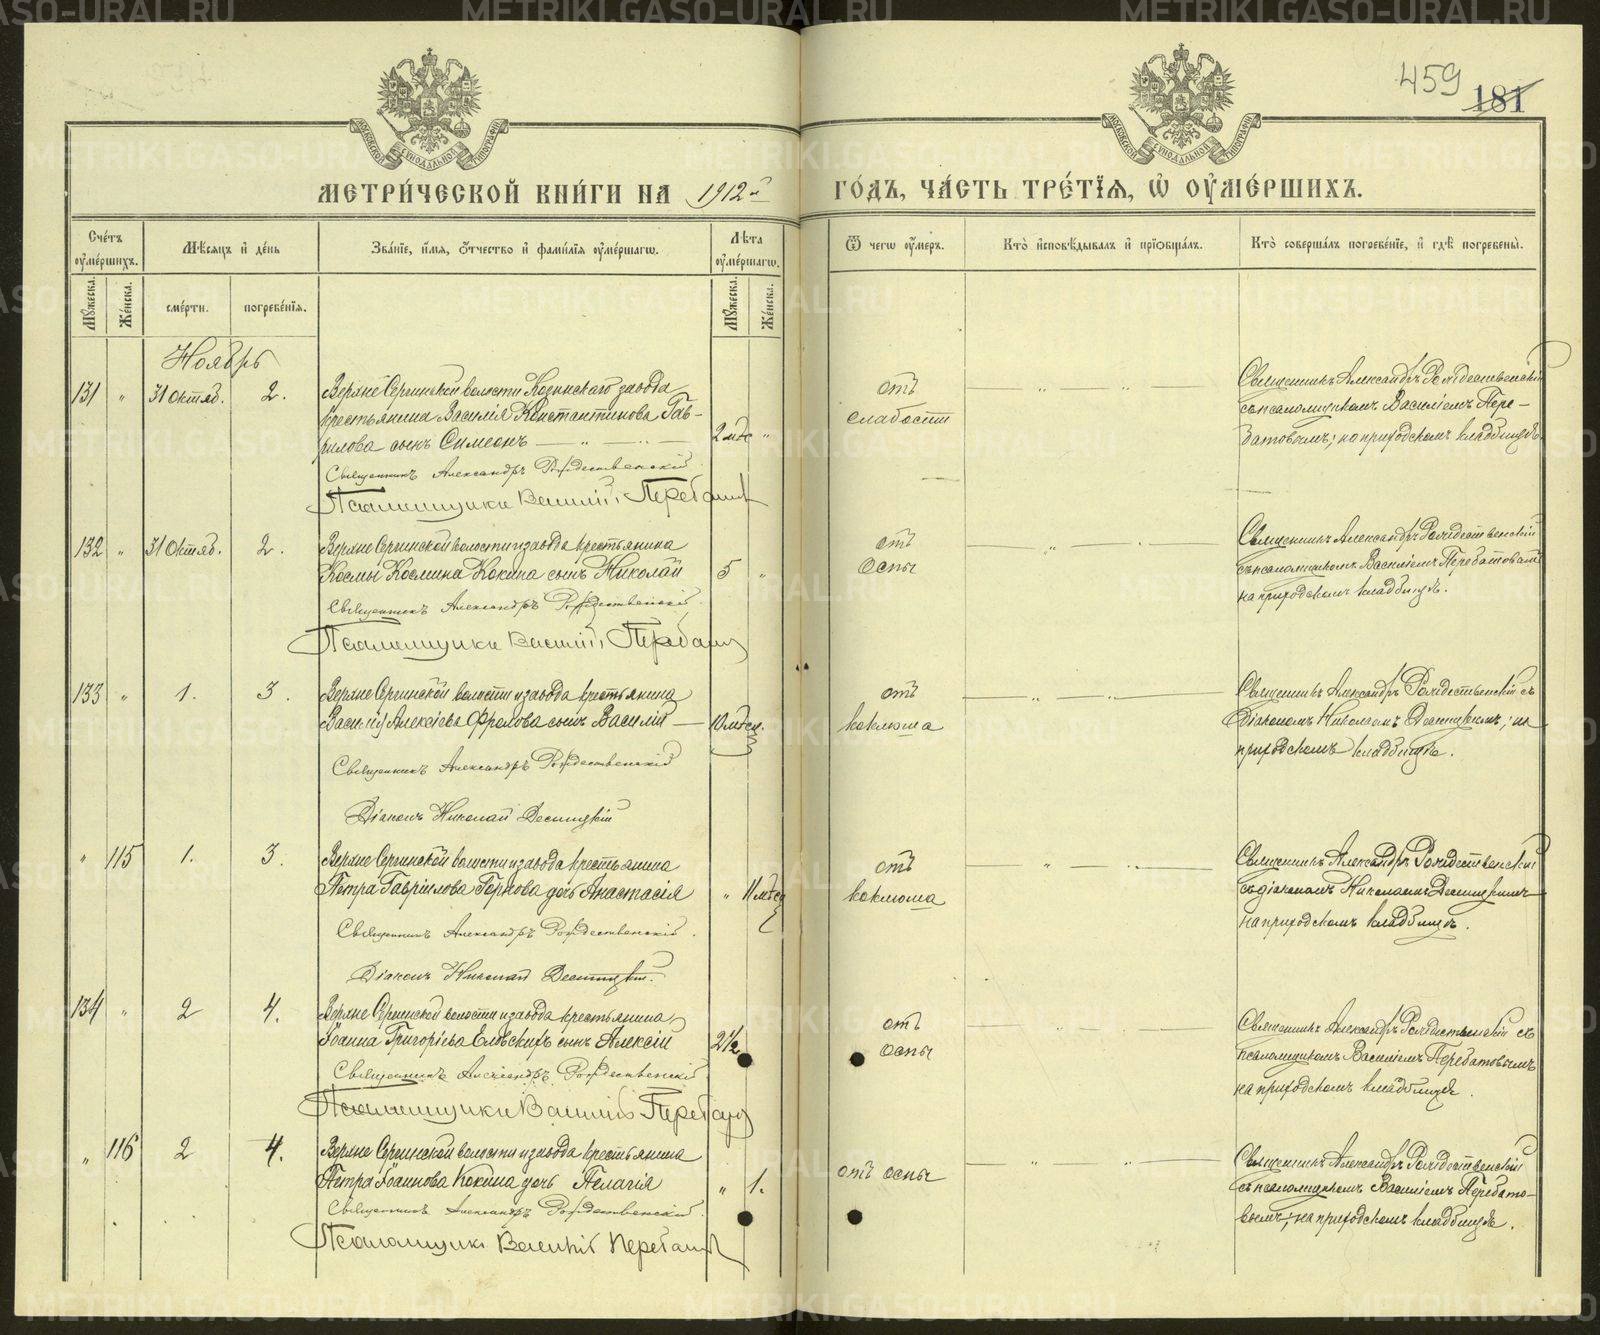 459
181
МЕТРИ́ЧЕСКОЙ КНИ́ГИ НА 1912й ГО́ДЪ, ЧА́СТЬ ТРЕ́ТІЯ, Ѡ ОУМЕ́РШИХЪ.
Счетъ оумершихъ.
Мѣсяцъ и день
Званіе, имя, отчество и фамилія оумершагѡ.
Лѣта оумершагѡ.
Ѿ чегѡ оумеръ.
Кто исповѣдывалъ и пріѡбщалъ.
Кто совершалъ погребеніе, и гдѣ погребены.
Мужеска.
Женска.
смерти.
погребенія.
Мужеска.
Женска.
Ноябрь
131 " 31 Октяб. 2.
Верхне Сергинской волости Козинскаго завода
крестьянина Василія Константинова Гав-
рилова сынъ Симеонъ
2 мѣс "
отъ
слабости
Священникъ Александръ Рождественскій
съ псаломщикомъ Василіемъ Пере-
батовымъ; на приходскомъ кладбищѣ.
Священникъ Александръ Рождественскій
Псаломщикъ Василій Перебатов
132 " 31 Октяб. 2.
Верхне Сергинской волости и завода крестьянина
Космы Космина Кокина сынъ Николай
5 "
отъ
Оспы
Священникъ Александръ Рождественскій
съ псаломщикомъ Василіемъ Перебатовымъ
на приходскомъ кладбищѣ.
Священникъ Александръ Рождественскій.
Псаломщикъ Василій Перебатов
133 " 1. 3.
Верхне Сергинской волости и завода крестьянина
Василія Алексіева Фролова сынъ Василій
10 мѣсяц.
отъ
коклюша
Священникъ Александръ Рождественскій съ
Діакономъ Николаемъ Десницкимъ; на
приходскомъ кладбищѣ.
Священникъ Александръ Рождественскій
Діаконъ Николай Десницкій
" 115 1. 3.
Верхне Сергинской волости и завода крестьянина
Петра Гавріилова дочь Анастасія
" 11 мѣсяц
отъ
коклюша
Священникъ Александръ Рождественскій
съ діакономъ Николаемъ Десницкимъ
на приходскомъ кладбищѣ.
Священникъ Александръ Рождественскій.
Діаконъ Николай Десницкій.
134 " 2 4.
Верхне Сергинской волости и завода крестьянина
Іоанна Григоріева Еловскихъ сынъ Алексій
2 1/2
отъ
оспы
Священникъ Александръ Рождественскій съ
псаломщикомъ Василіемъ Перебатовымъ
на приходскомъ кладбищѣ.
Священникъ Александръ Рождественскій
Псаломщикъ Василій Перебатов
" 116 2 4.
Верхне Сергинской волости и завода крестьянина
Петра Іоаннова Кокина дочь Пелагія
" 1.
отъ оспы
Священникъ Александръ Рождественскій
съ псаломщикомъ Василіемъ Перебато-
вымъ; на приходскомъ кладбищѣ.
Священникъ Александръ Рождественскій.
Псаломщикъ Василій Перебатов
METRIKI.GASO-URAL.RU